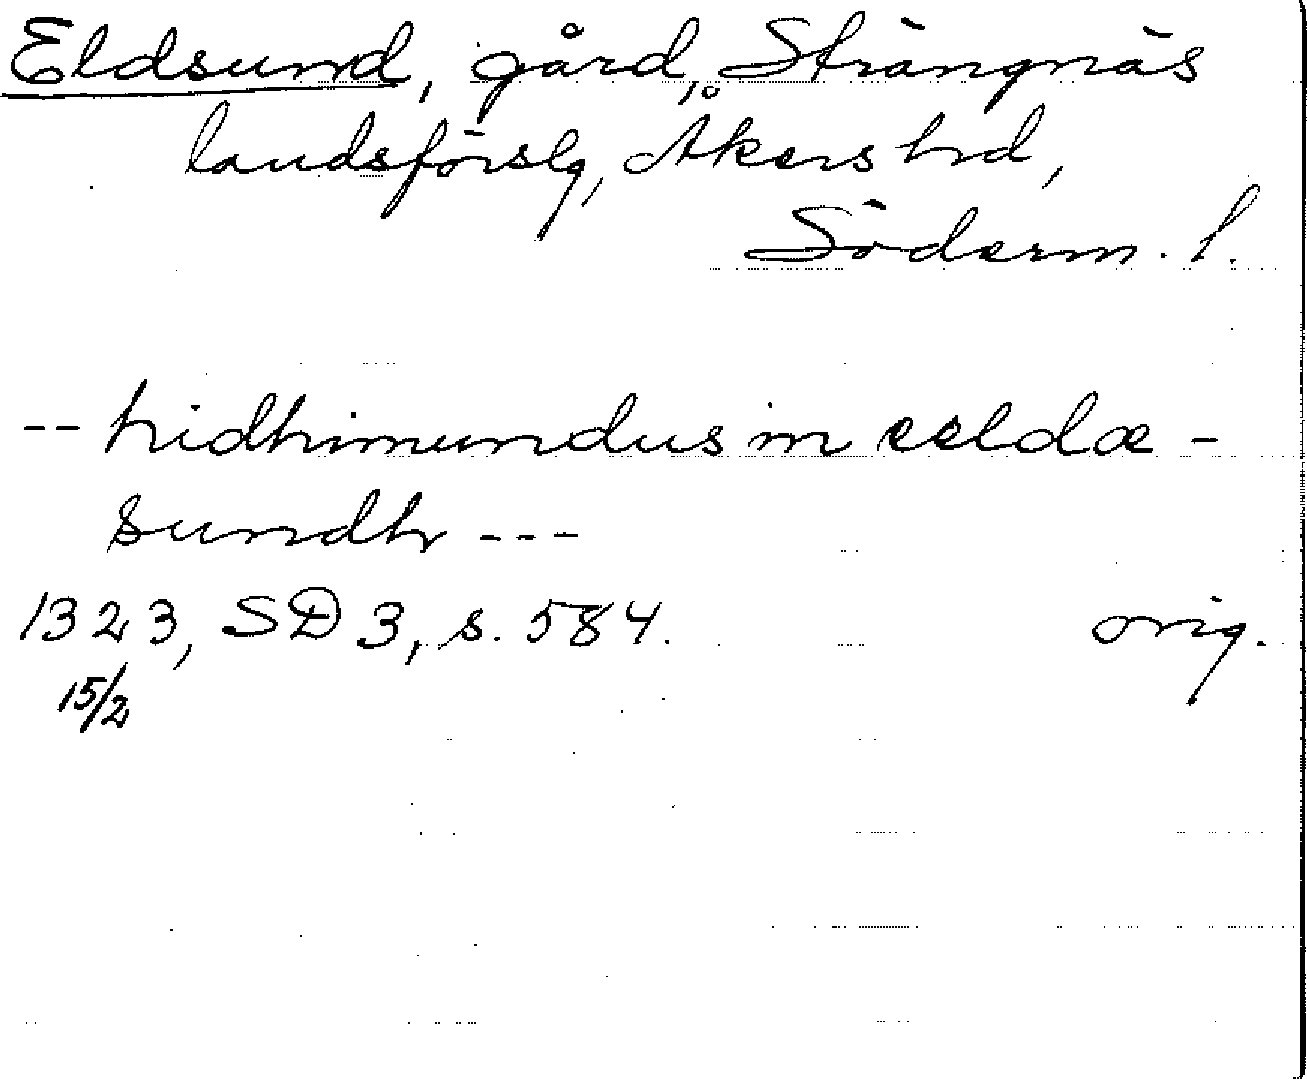 Eldsund, gård, Strängnäs
landsförslg, Åkers hd,
Söderm. l.
-- hidhinmundus in eeldæ-
sundh ---
1323, SD 3, s. 584. orig.
15/2